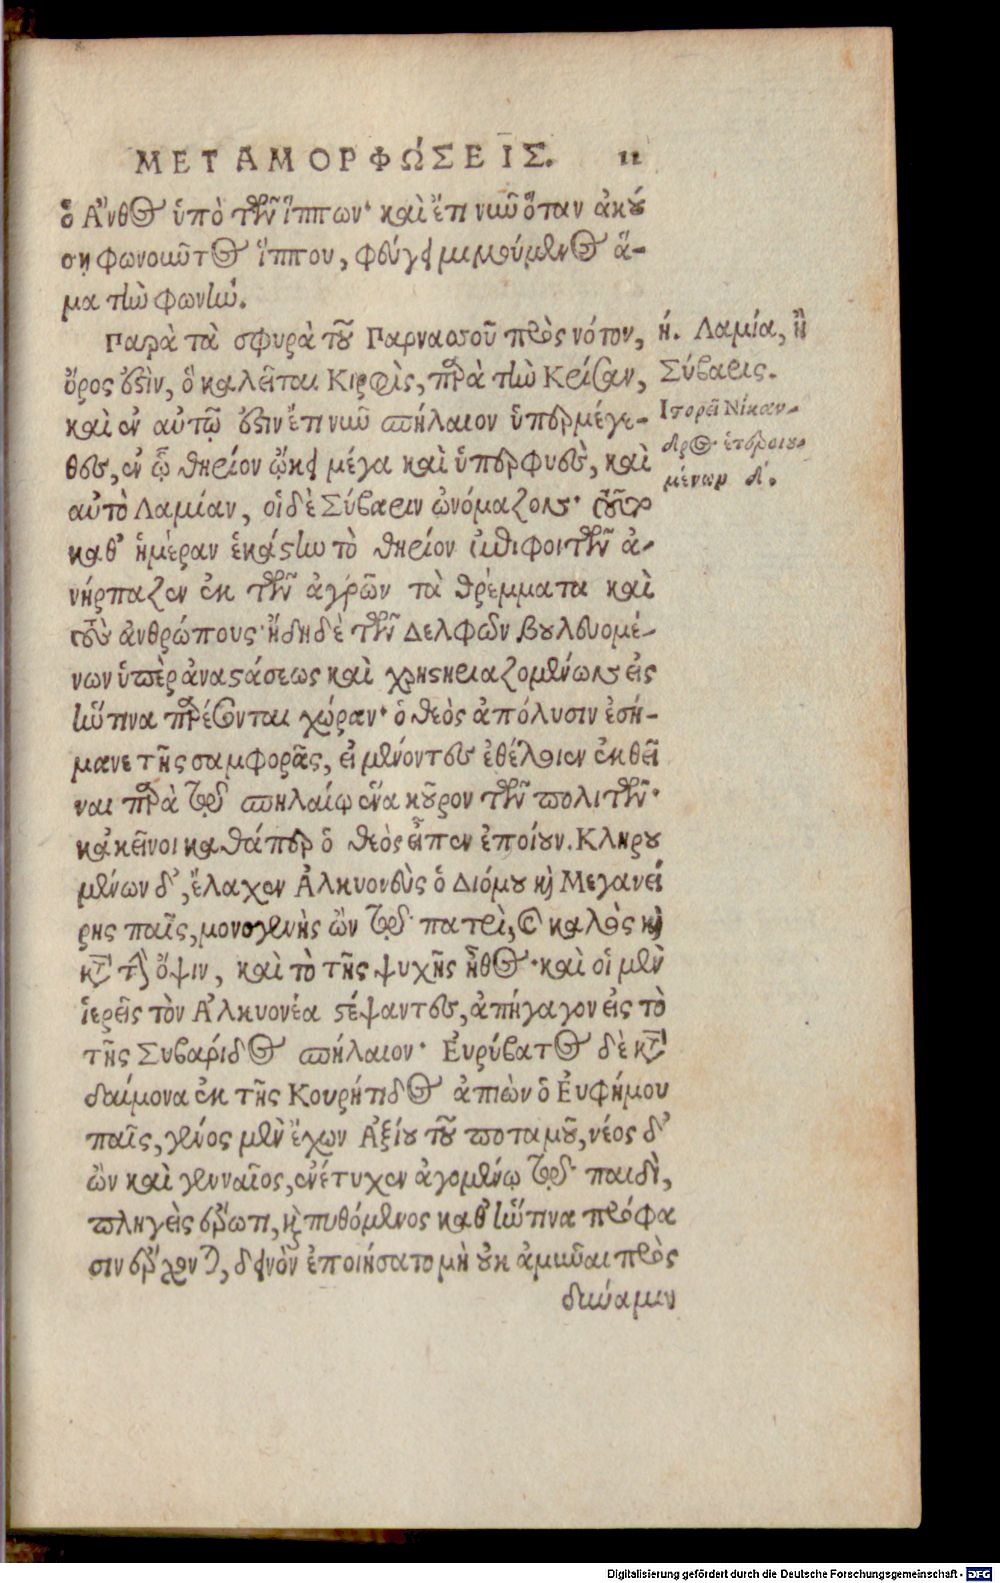 ΜΕΤΑΜΟΡΦΏΣΕΙΣ. 11
ὁ Ἄνθος ὑπὸ τῶν ἵππων· καὶ ἔτι νῦν ὅταν ἀκού
σῃ φωνοῦντος ἵππου, φεύγει μιμούμενος ἅ-
μα τὴν φωνήν.
Παρὰ τὰ σφυρὰ τοῦ Παρνασοῦ πρὸς νότον,
ὄρος ἐστὶν, ὃ καλεῖται Κιρφὶς, παρὰ τὴν Κρίσαν,
καὶ ἐν αὐτῷ ἐστιν ἔτι νῦν σπήλαιον ὑπερμέγε-
θες, ἐν ᾧ θηρίον ᾤκει μέγα καὶ ὑπερφυὲς, καὶ
αὐτὸ Λαμίαν, οἱ δὲ Σύβαριν ὠνόμαζον· τοῦτο
καθ' ἡμέραν ἑκάστην τὸ θηρίον ἐπιφοιτῶν ἀ-
νήρπαζεν ἐκ τῶν ἀγρῶν τὰ θρέμματα καὶ
τοὺς ἀνθρώπους· ἤδη δὲ τῶν Δελφῶν βουλευομέ-
νων ὑπὲρ ἀναστάσεως καὶ χρηστηριαζομένων εἰς
ἥντινα παρέσονται χώραν· ὁ θεὸς ἀπόλυσιν ἐσή-
μανε τῆς σαμφορᾶς, εἰ μένοντες ἐθέλοιεν ἐκθεῖ
ναι παρὰ τῷ σπηλαίῳ ἕνα κοῦρον τῶν πολιτῶν·
κἀκεῖνοι καθάπερ ὁ θεὸς εἶπεν ἐποίουν. Κληρου
μένων δ', ἔλαχεν Ἀλκυονεὺς ὁ Διόμου καὶ Μεγανεί
ρης παῖς, μονογενὴς ὢν τῷ πατρὶ, καὶ καλὸς καὶ
κατὰ τὴν ὄψιν, καὶ τὸ τῆς ψυχῆς ἦθος· καὶ οἱ μὲν
ἱερεῖς τὸν Ἀλκυονέα στέψαντες, ἀπήγαγον εἰς τὸ
τῆς Συβαρίδος σπήλαιον· Εὐρύβατος δὲ κατὰ
δαίμονα ἐκ τῆς Κουρήτιδος ἀπιὼν ὁ Εὐφήμου
παῖς, γένος μὲν ἔχων Ἀξίου τοῦ ποταμοῦ, νέος δ'
ὢν καὶ γενναῖος, ἐνέτυχεν ἀγομένῳ τῷ παιδὶ,
πληγεὶς ἔρωτι, καὶ πυθόμενος καθ' ἥντινα πρόφα
σιν ἔρχονται, δεινὸν ἐποιήσατο μὴ οὐκ ἀμῦναι πρὸς
δύναμιν
η. Λαμία, ἢ
Σύβαρις.
Ἱστορεῖ Νίκαν-
δρος ἑτεροιου-
μένων δ'.
Digitalisierung gefördert durch die Deutsche Forschungsgemeinschaft - DFG